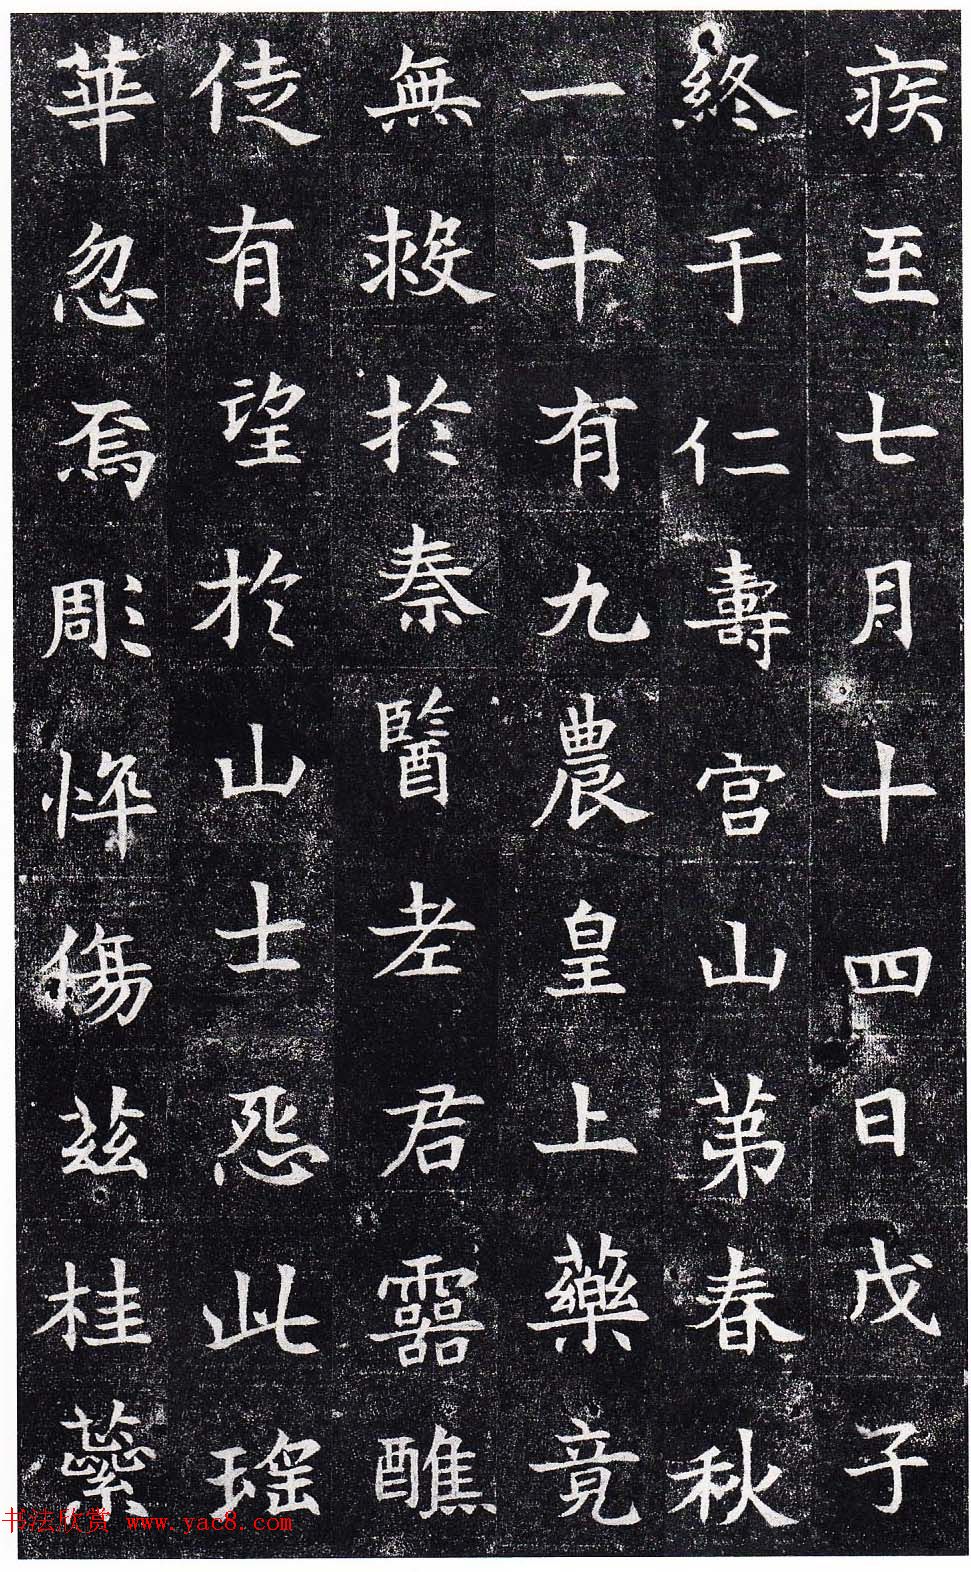 疾至七月十四日戊子
終于仁壽宮山第春秋
一十有九農皇上藥竟
無救於秦醫老君靈醮
徒有望於山士怨此瑤
華忽焉彫悴傷茲桂蘂
书法欣赏 www.yac8.com